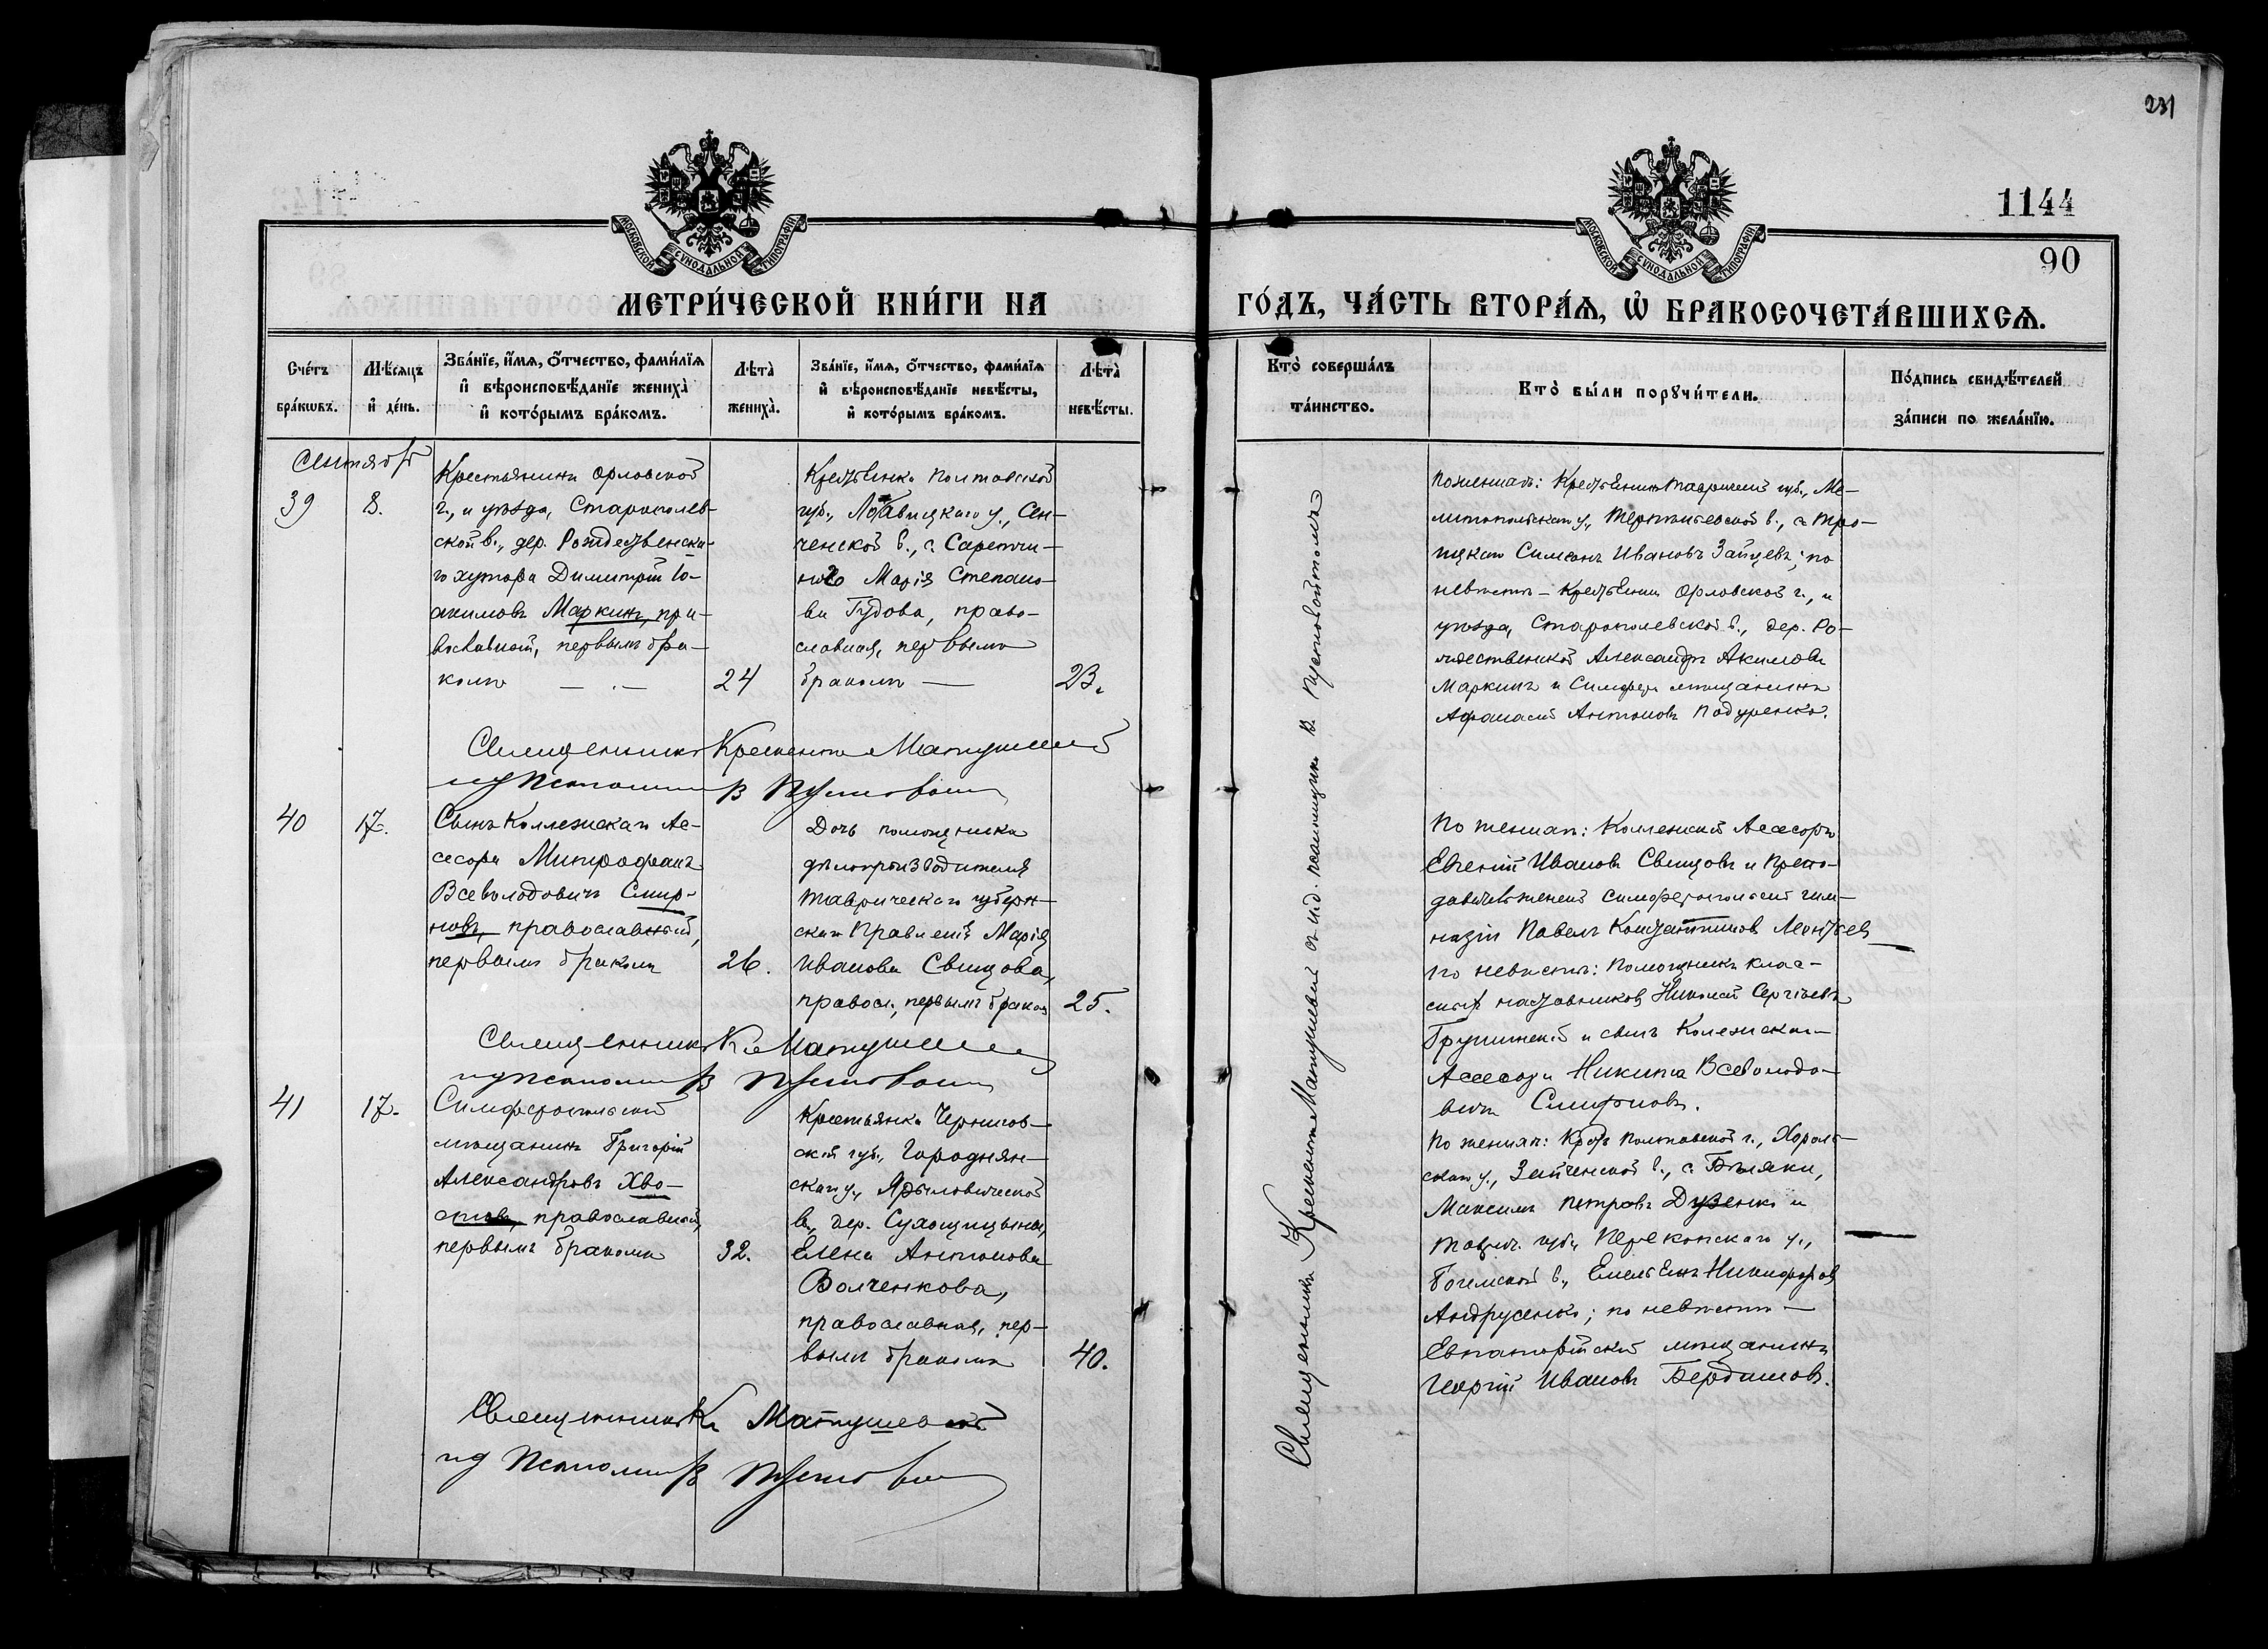 231
1144
90
МОСКОВСКОЙ СѴНОДАЛЬНОЙ ТИПОГРАФІИ
МОСКОВСКОЙ СѴНОДАЛЬНОЙ ТИПОГРАФІИ
МЕТРИ́ЧЕСКОЙ КНИ́ГИ НА
ГО́ДЪ, ЧА́СТЬ ВТОРА́Ѧ, Ѡ҆ БРАКОСОЧЕТА́ВШИХСѦ.
Сче́тъ
бра́кѡвъ.
Мѣ́сѧцъ
и҆ де́нь.
Зва́нїе, и҆́мѧ, о҆́тчество, фами́лїѧ
и҆ вѣроисповѣ́данїе жениха̀
и҆ кото́рымъ бра́комъ.
Лѣ́та̀
жениха̀.
Зва́нїе, и҆́мѧ, о҆́тчество, фами́лїѧ
и҆ вѣроисповѣ́данїе невѣ́сты,
и҆ кото́рымъ бра́комъ.
Лѣ́та̀
невѣ́сты.
Кто̀ соверша́лъ
та́инство.
Кто̀ бы́ли порꙋчи́тели.
По́дпись свидѣ́телей
за́писи по жела́нїю.
Сентябрь
39
8.
Крестьянинъ Орловской
г., и уѣзда, Старополев-
ской в., дер. Рождественска-
го хутора Димитрій Іо-
акимовъ Маркинъ, пра-
вославный, первымъ бра-
комъ
24
Крестьянка Полтавской
губ., Лохвицкаго у., Сен-
ченской в., с.
Марія Степано-
ва Гудова, право-
славная, первымъ
бракомъ
23.
Поженихѣ: Крестьянинъ Таврической губ., Ме-
литопольскаго у., с. Тро-
ицкаго Симеонъ Ивановъ Зайцевъ; по
невѣстѣ - Крестьянинъ Орловской г., и
уѣзда, Старополевской в., дер. Ро-
ждественской Александръ Акимовъ
Маркинъ и Симфер. мѣщанинъ
Афанасій Антоновъ Падуренко.
Священникъ Крискентъ Матушевскій
и д Псаломщ В Пустовой
40
17.
Сынъ Коллежскаго Ас-
сесора Митрофанъ
Всеволодовичъ Смир-
новъ, православный,
первымъ бракомъ
26.
Дочь помощника
дѣлопроизводителя
Таврическаго губерн-
скаго Правленія Марія
Иванова Свищова,
правосл., первымъ бракомъ
25.
По женихѣ: Коллежскій Асесоръ
Евгеній Ивановъ Свищовъ и Препо-
даватель женской симферопольской гим-
назіи Павелъ Константиновъ Леонтьевъ
По невѣстѣ: Помощникъ клас-
сныхъ наставниковъ Николай Сергіевъ
и сынъ Колежскаго
Асесора Никита Всеволодо-
вичъ Смирновъ.
Священникъ К. Матушевскій
и д Псаломщ В Пустовой
41
17.
Симферопольскій
мѣщанинъ Григорій
Александровъ Хво-
стовъ, православный,
первымъ бракомъ
32.
Крестьянка Чернигов-
ской губ., Городнян-
скаго у., Яриловической
в., дер.
Елена Антонова
Волченкова,
православная, пер-
вымъ бракомъ
40.
По женихѣ: Крест. Полтавской г., Хороль-
скаго у., Зайченской в., с. Бѣляки,
Максимъ Петровъ Дузенко и
Таврич. губ., Перекопскаго у.,
в., Емельянъ Никифоровъ
Андрусенко; по невѣстѣ -
Евпаторійскій мѣщанинъ
Георгій Ивановъ Бердишовъ.
Священникъ К. Матушевскій
и д Псаломщ В Пустовой
Священникъ Крискентъ Матушевскій съ и.д. псаломщика В. Пустовойтомъ